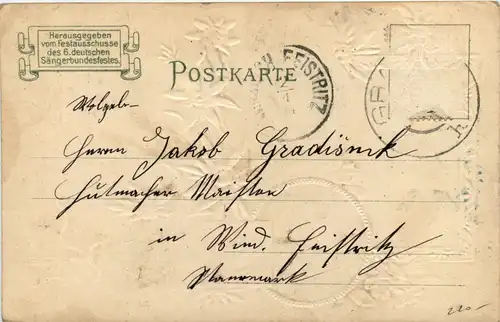 Herausgegeben
vom Festausschusse
des 6. deutschen
Sängerbundesfestes.
POSTKARTE
FEISTRITZ
GRA
Wolgeb–
Herrn Jakob Gradišnik
Hutmacher Meister
in Wind. Feistritz
220.-